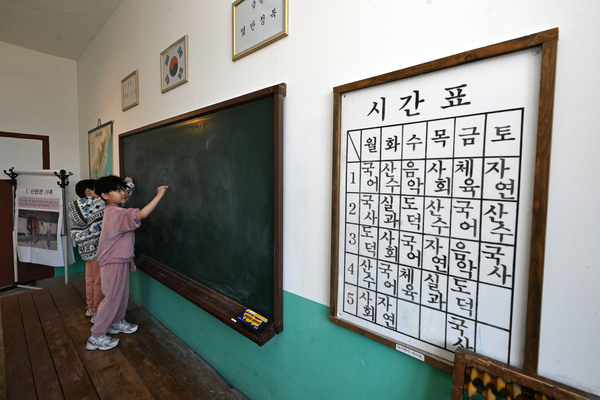 1. 단란한 가족
시간표
월 화 수 목 금 토
1 국어 산수 음악 사회 체육 자연
2 국사 실과 도덕 산수 국어 산수
3 도덕 사회 국어 자연 음악 국사
4 산수 국어 체육 실과 도덕
5 사회 자연 국사